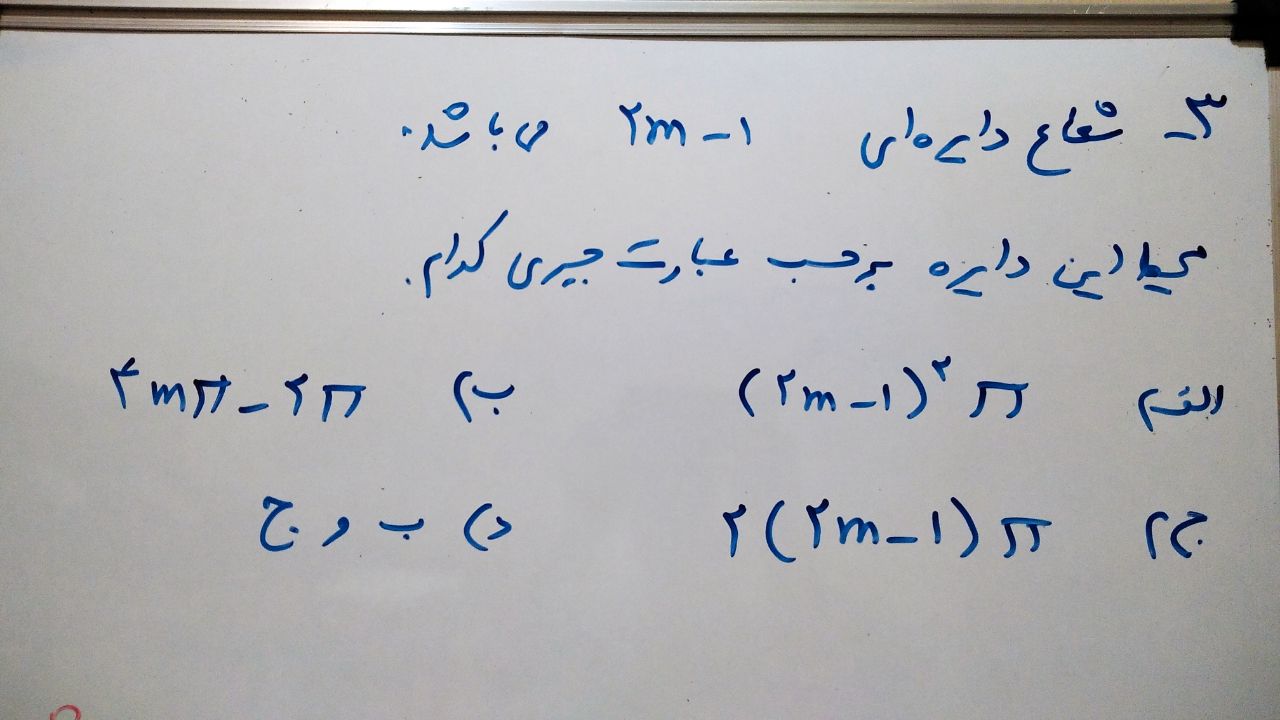 ۳- شعاع دایره‌ای ۲m-۱ می باشد.
محیط این دایره برحسب عبارت جبری کدام.
الف) (۲m-۱)^۲ π ب) ۴mπ-۲π
ج) ۲(۲m-۱)π د) ب و ج